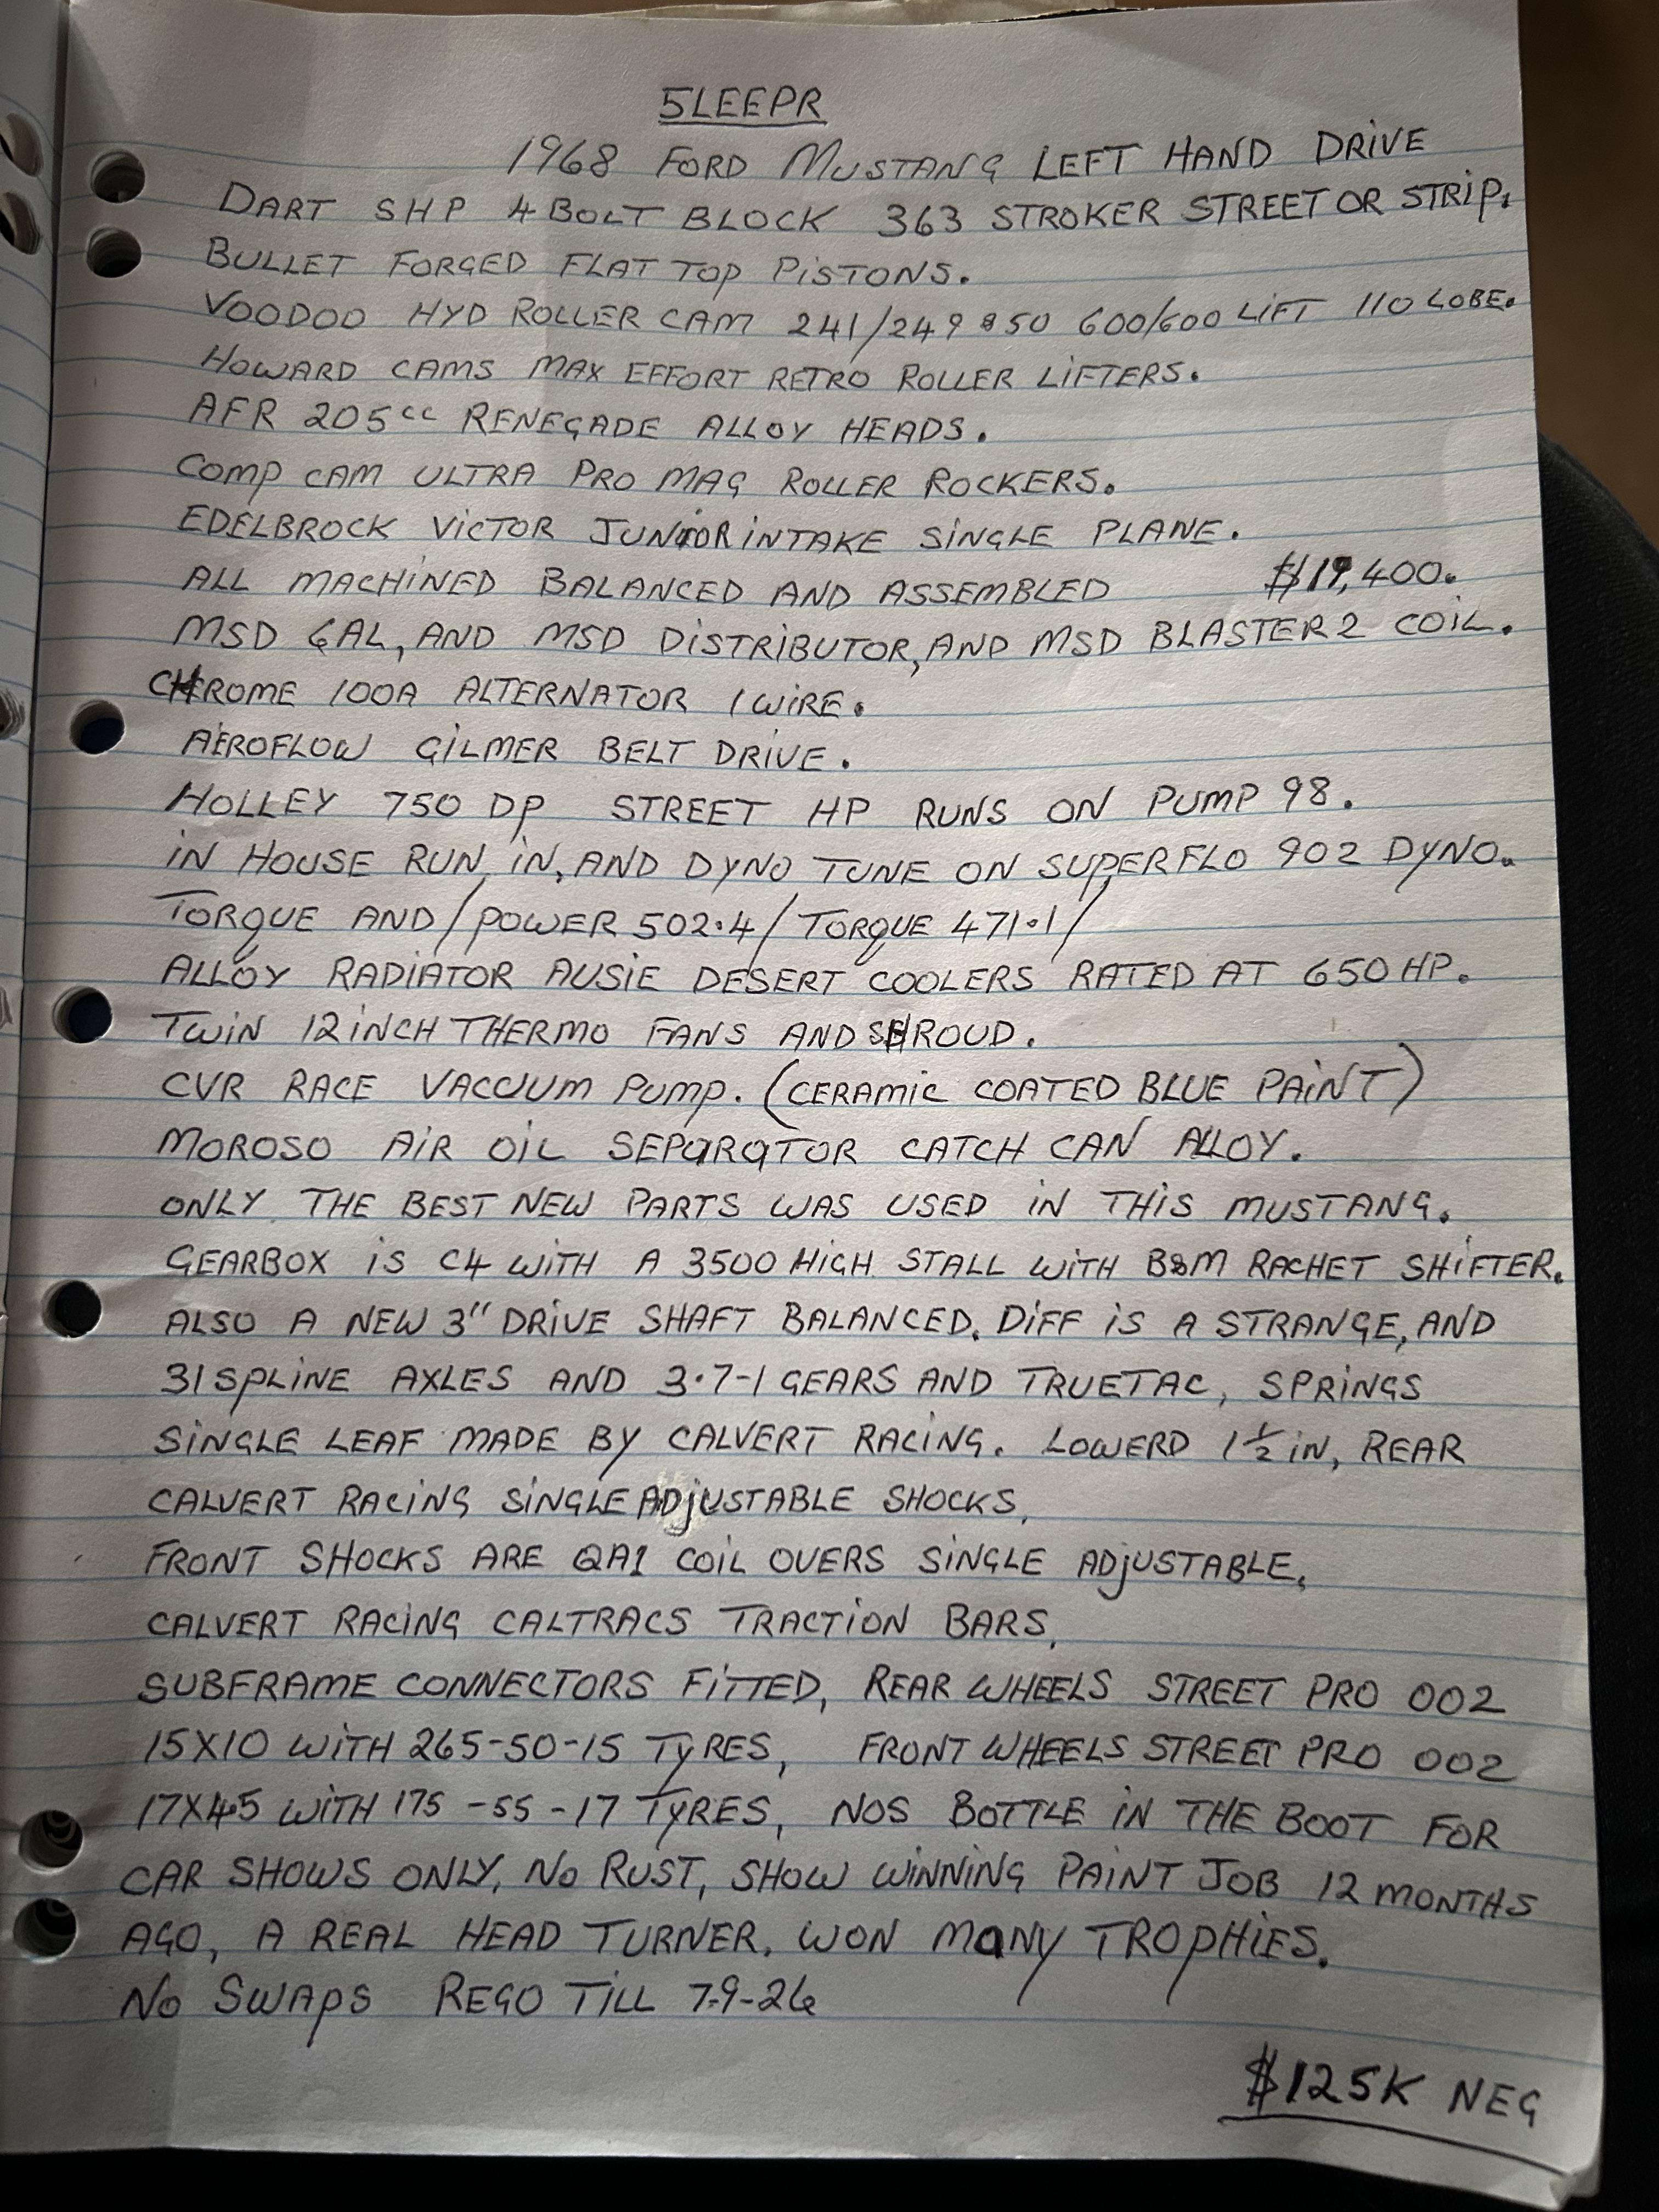 5LEEPR
1968 FORD MUSTANG LEFT HAND DRIVE
DART SHP 4 BOLT BLOCK 363 STROKER STREET OR STRIP.
BULLET FORGED FLAT TOP PISTONS.
VOODOO HYD ROLLER CAM 241/249 @50 600/600 LIFT 110 LOBE.
HOWARD CAMS MAX EFFORT RETRO ROLLER LIFTERS.
AFR 205cc RENEGADE ALLOY HEADS.
COMP CAM ULTRA PRO MAG ROLLER ROCKERS.
EDELBROCK VICTOR JUNIOR INTAKE SINGLE PLANE.
ALL MACHINED BALANCED AND ASSEMBLED $19,400.
MSD 6AL, AND MSD DISTRIBUTOR, AND MSD BLASTER 2 COIL.
CHROME 100A ALTERNATOR 1 WIRE.
AEROFLOW GILMER BELT DRIVE.
HOLLEY 750 DP STREET HP RUNS ON PUMP 98.
IN HOUSE RUN IN, AND DYNO TUNE ON SUPERFLO 902 DYNO.
TORQUE AND / POWER 502.4 / TORQUE 471.1 /
ALLOY RADIATOR AUSIE DESERT COOLERS RATED AT 650 HP.
TWIN 12 INCH THERMO FANS AND SHROUD.
CVR RACE VACUUM PUMP. (CERAMIC COATED BLUE PAINT)
MOROSO AIR OIL SEPARATOR CATCH CAN ALLOY.
ONLY THE BEST NEW PARTS WAS USED IN THIS MUSTANG.
GEARBOX IS C4 WITH A 3500 HIGH STALL WITH B&M RACHET SHIFTER.
ALSO A NEW 3" DRIVE SHAFT BALANCED. DIFF IS A STRANGE, AND
31 SPLINE AXLES AND 3.7-1 GEARS AND TRUETAC, SPRINGS
SINGLE LEAF MADE BY CALVERT RACING. LOWERD 1 1/2 IN, REAR
CALVERT RACING SINGLE ADJUSTABLE SHOCKS,
FRONT SHOCKS ARE QA1 COIL OVERS SINGLE ADJUSTABLE,
CALVERT RACING CALTRACS TRACTION BARS,
SUBFRAME CONNECTORS FITTED, REAR WHEELS STREET PRO 002
15X10 WITH 265-50-15 TYRES, FRONT WHEELS STREET PRO 002
17X4.5 WITH 175-55-17 TYRES, NOS BOTTLE IN THE BOOT FOR
CAR SHOWS ONLY, NO RUST, SHOW WINNING PAINT JOB 12 MONTHS
AGO, A REAL HEAD TURNER. WON MANY TROPHIES.
NO SWAPS REGO TILL 7-9-26
$125K NEG